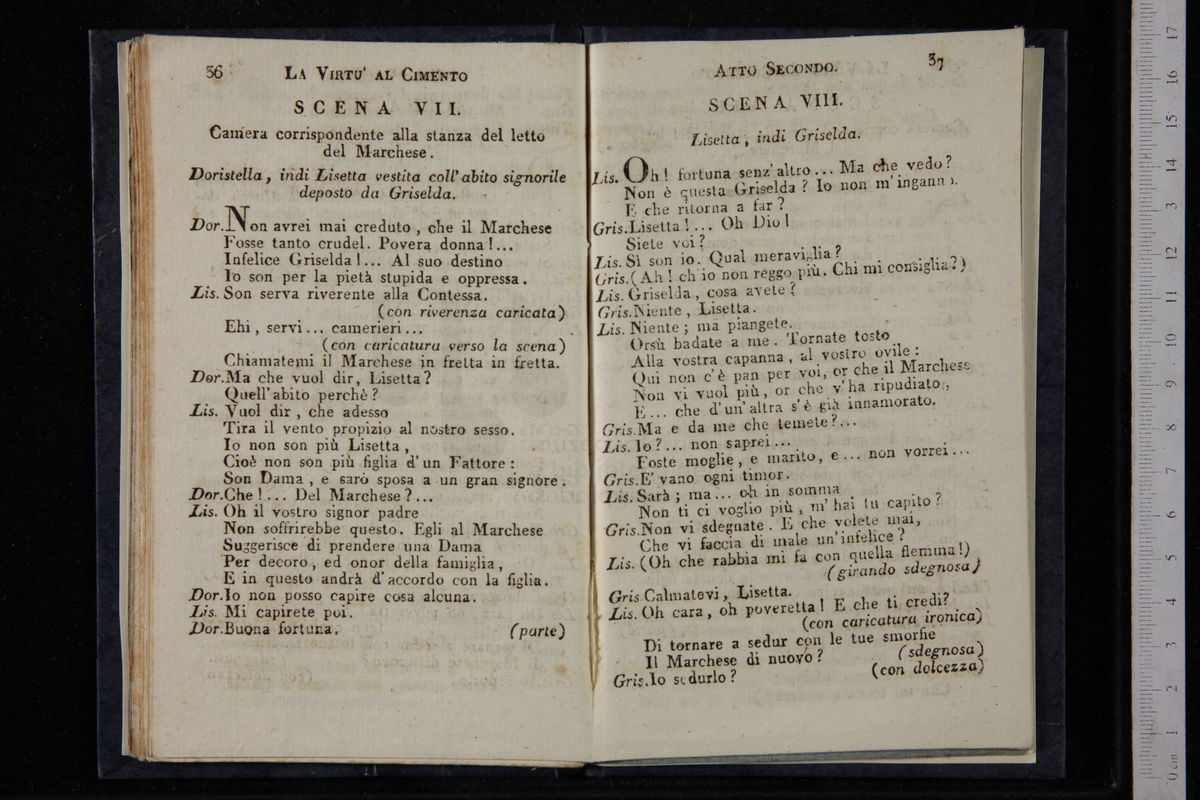 36 LA VIRTU' AL CIMENTO
SCENA VII.
Camera corrispondente alla stanza del letto
del Marchese.
Doristella, indi Lisetta vestita coll'abito signorile
deposto da Griselda.
Dor. Non avrei mai creduto, che il Marchese
Fosse tanto crudel. Povera donna!...
Infelice Griselda!... Al suo destino
Io son per la pietà stupida e oppressa.
Lis. Son serva riverente alla Contessa.
(con riverenza caricata)
Ehi, servi... camerieri...
(con caricatura verso la scena)
Chiamatemi il Marchese in fretta in fretta.
Dor. Ma che vuol dir, Lisetta?
Quell'abito perchè?
Lis. Vuol dir, che adesso
Tira il vento propizio al nostro sesso.
Io non son più Lisetta,
Cioè non son più figlia d'un Fattore:
Son Dama, e sarò sposa a un gran signore.
Dor. Che!... Del Marchese?...
Lis. Oh il vostro signor padre
Non soffrirebbe questo. Egli al Marchese
Suggerisce di prendere una Dama
Per decoro, ed onor della famiglia,
E in questo andrà d'accordo con la figlia.
Dor. Io non posso capire cosa alcuna.
Lis. Mi capirete poi.
Dor. Buona fortuna. (parte)
ATTO SECONDO. 37
SCENA VIII.
Lisetta, indi Griselda.
Lis. Oh! fortuna senz'altro... Ma che vedo?
Non è questa Griselda? Io non m'inganno.
E che ritorna a far?
Gris. Lisetta!... Oh Dio!
Siete voi?
Lis. Sì son io. Qual meraviglia?
Gris. (Ah! ch'io non reggo più. Chi mi consiglia?)
Lis. Griselda, cosa avete?
Gris. Niente, Lisetta.
Lis. Niente; ma piangete.
Orsù badate a me. Tornate tosto
Alla vostra capanna, al vostro ovile:
Qui non c'è pan per voi, or che il Marchese
Non vi vuol più, or che v'ha ripudiato,
E... che d'un'altra s'è già innamorato.
Gris. Ma e da me che temete?...
Lis. Io?... non saprei...
Foste moglie, e marito, e... non vorrei...
Gris. E' vano ogni timor.
Lis. Sarà; ma... oh in somma
Non ti ci voglio più, m'hai tu capito?
Gris. Non vi sdegnate. E che volete mai,
Che vi faccia di male un'infelice?
Lis. (Oh che rabbia mi fa con quella flemma!)
(girando sdegnosa)
Gris Calmatevi, Lisetta.
Lis. Oh cara, oh poveretta! E che ti credi?
(con caricatura ironica)
Di tornare a sedur con le tue smorfie
Il Marchese di nuovo? (sdegnosa)
Gris. Io sedurlo? (con dolcezza)